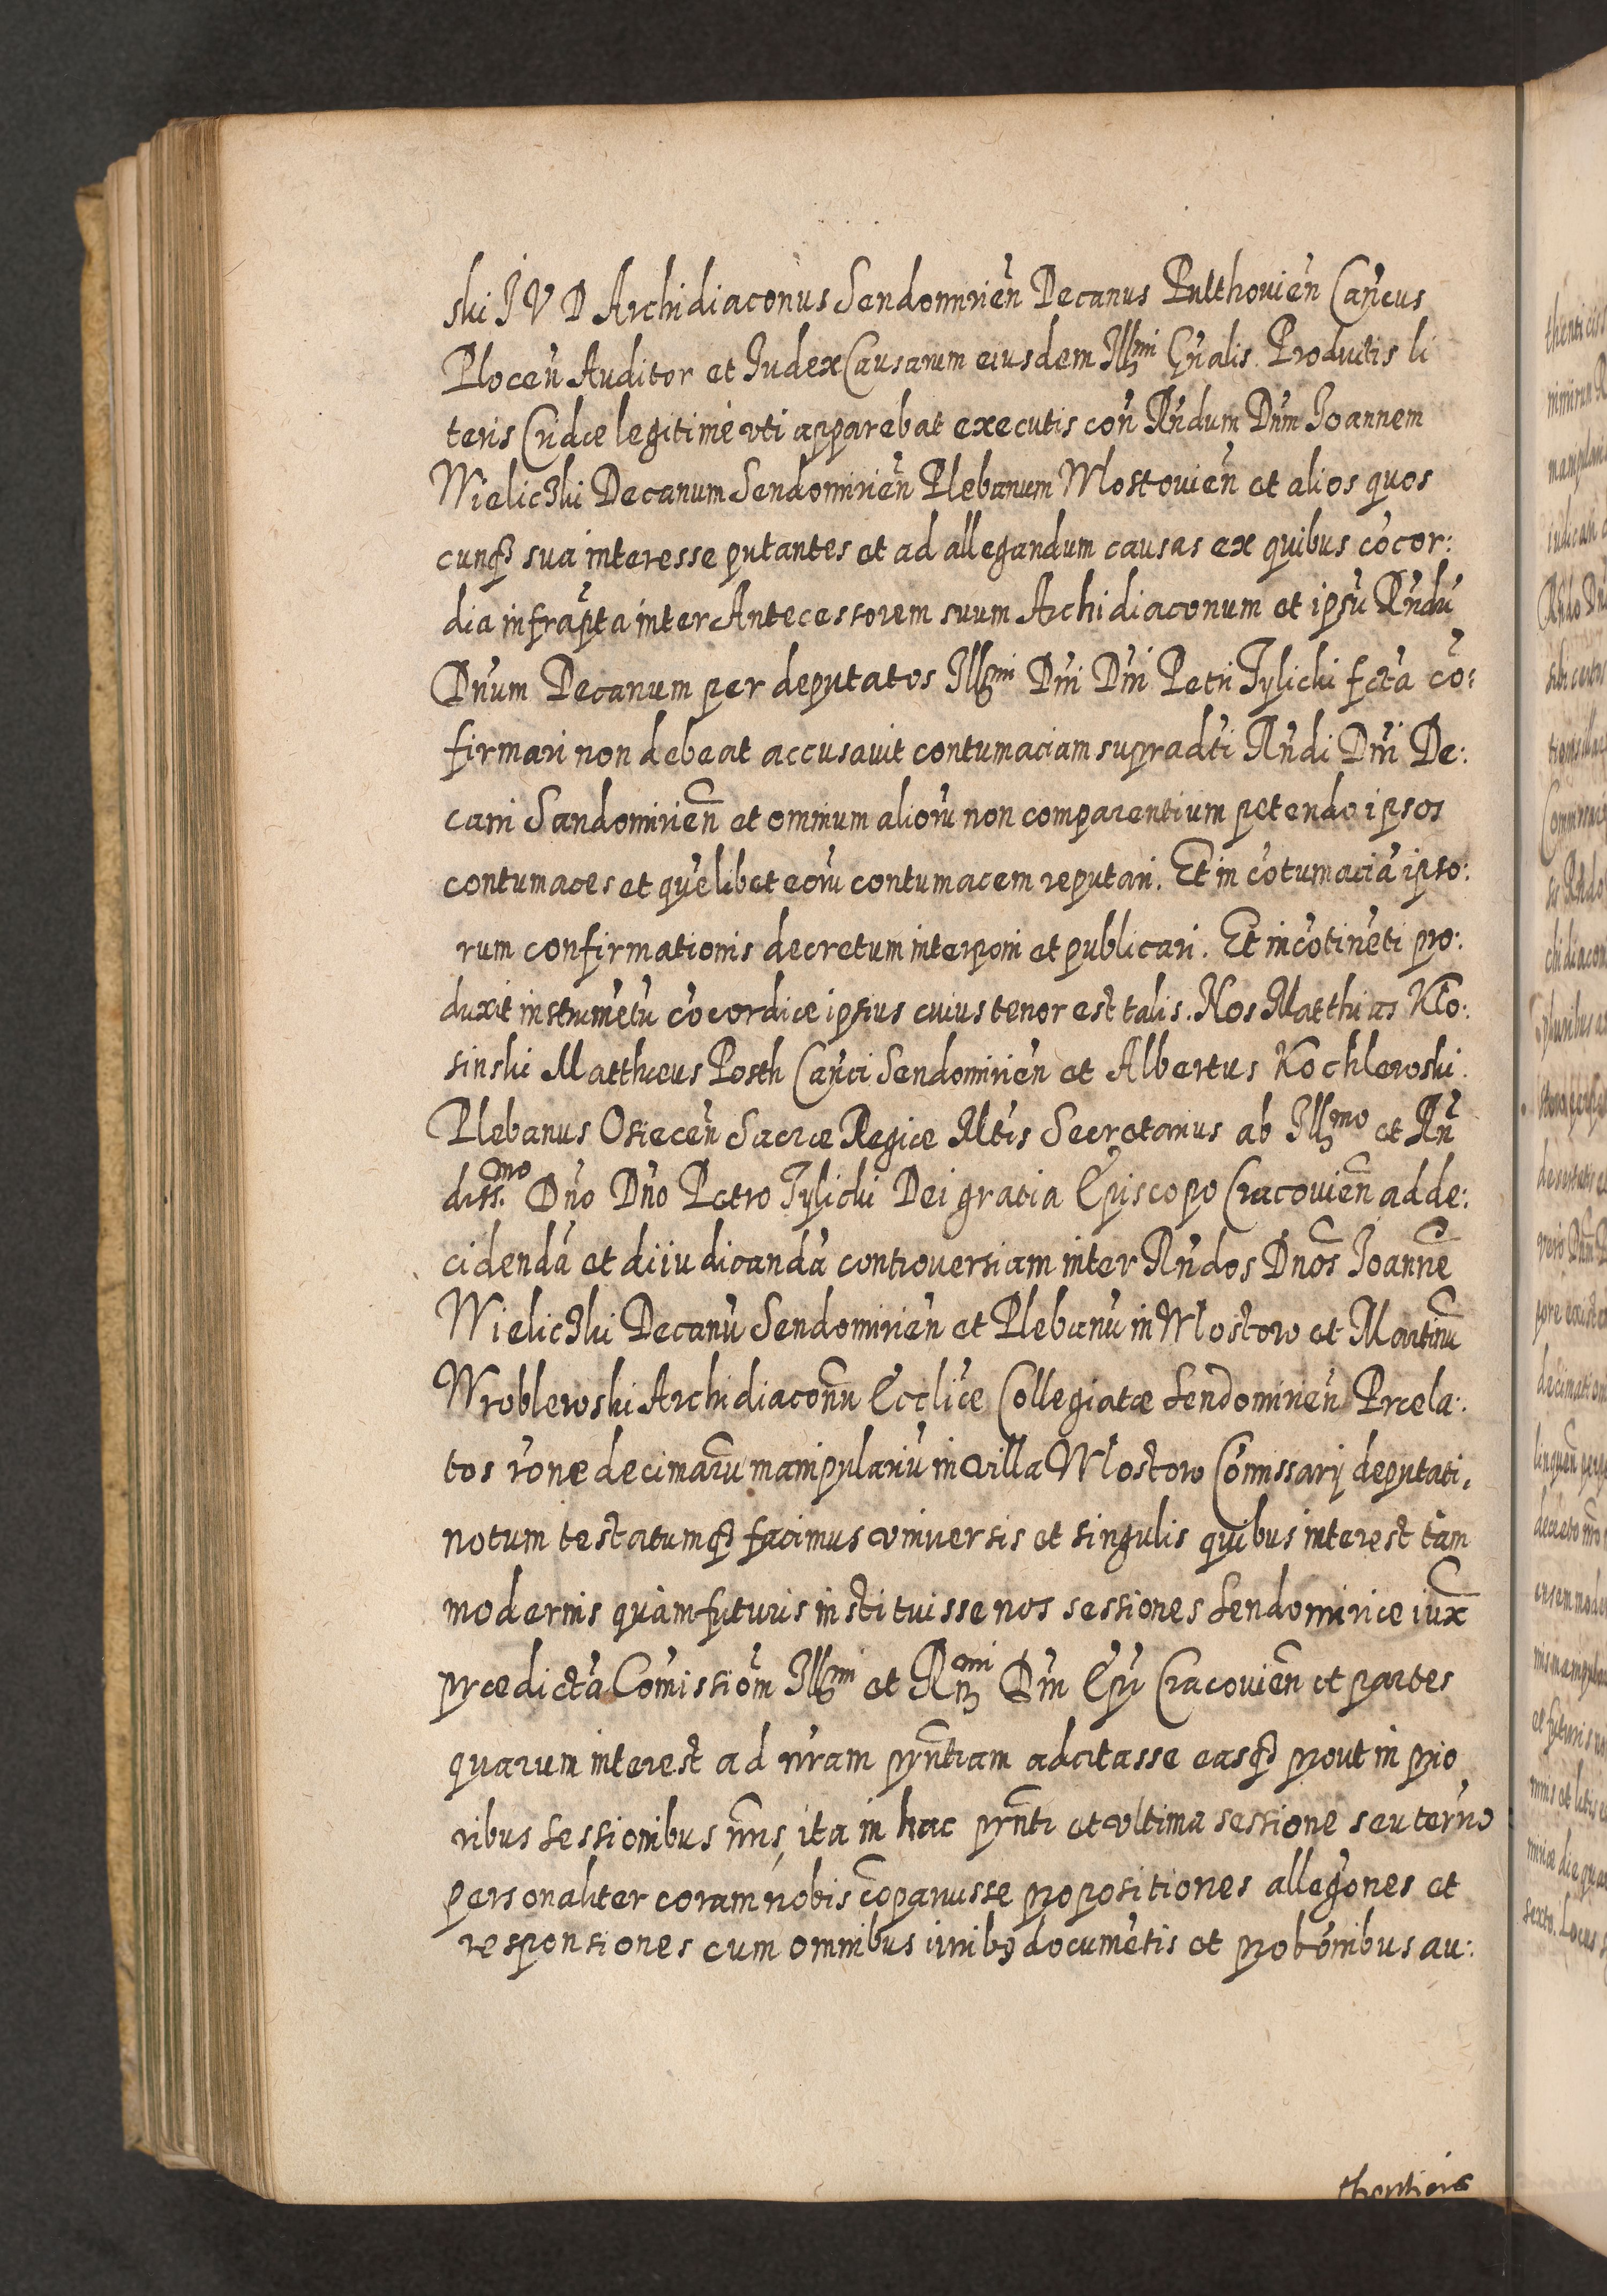 ski J V D Archidiaconus Sendomirień Decanus Pulthouień Cańcus
Ploceń Auditor et Iudex Causarum eiusdem Illmi Gńalis. Productis li
teris Cńdae legitimè vti apparebat executis coń Ańdum Dńm Joannem
Wielicżki Decanum Sendomirień Plebanum Wlostouień et alios quos
cunq3 sua interesse putantes et ad allegandum causas ex quibus cócor:
dia infrapta inter Antecessorem suum Archidiaconum et ipsú Rńdú
Dńum Decanum per deputatos Illmi Dńi Dńi Petri Tylicki fctá có:
firmari non debeat accusauit contumaciam supradti Rńdi Dńi De:
cani Sandomirień et omnium aliorú non comparentium petendo ipsos
contumaces et quélibet eorú contumacem reputari. Et in cótumaciá ipso:
rum confirmationis decretum interponi et publicari. Et incótinéti pro:
duxit instrumétú cócordiae ipsius cuius tenor est talis. Nos Matthias Kło:
sinski Matthaeus Posth Cańci Sendomirień et Albertus Kochlewski
Plebanus Osieceń Sacrae Regiae Mtis Secretarius ab Illmo et Rń
diss.mo Dńo Dńo Petro Tylicki Dei gratia Episcopo Cracouień ad de:
cidendá et diiudicandá controuersiam inter Rńdos Dnos Joanné
Wielicżki Decanú Sendomirień et Plebanú in Wlostow et Martinú
Wroblewski Archidiaconú Ecclíae Collegiatae Sendomirień Praela:
tos róne decimarú manipulariú in villa Wlostow Cómissarij deputati,
notum testatumq3 facimus vniuersis et singulis quibus interest tam
modernis quàm futuris instituisse nos sessiones Sendomiriae iux̃
praedictá Comissioñ Illmi et Rmi Dńi Epi Cracouień et partes
quarum interest ad ńram pñtiam adcitasse easq3 prout in prio
ribus sessionibus ńris, ita in hac pñti et vltima sessione seu termo
personaliter coram nobis cõparuisse propositiones allegónes et
responsiones cum omnibus iurib9 documétis et probónibus au:
thenticis